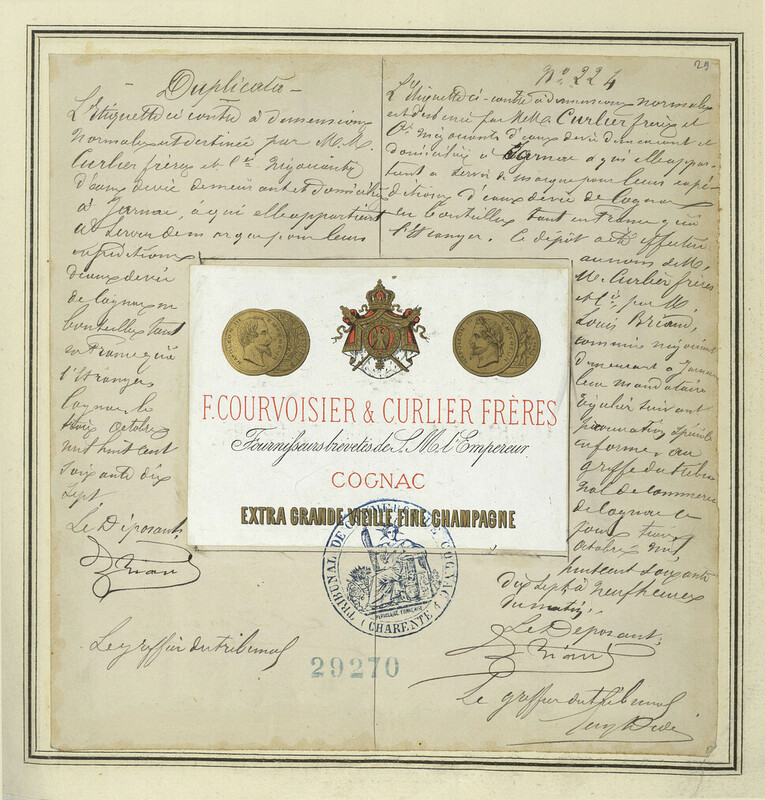 29
Duplicata -
L'Etiquette ci contre à dimensions
normales est destinée par M.M.
Curlier frères et Cie Négociants
d'eaux de vie demeurant et domiciliés
à Jarnac, à qui elle appartient
à servir de marque pour leurs
expéditions
d'eaux de vie
de Cognac en
bouteilles tant
en France qu'à
l'Etranger
Cognac le
trois Octobre
mil huit cent
soixante dix
sept
Le Déposant,
Briand
Le greffier du tribunal
No 224
L'Etiquette ci-contre à dimensions normales
est destinée par M.M. Curlier frères et
Cie Négociants d'eaux de vie demeurant et
domiciliés à Jarnac à qui elle appar-
tient à servir de marque pour leurs expé-
ditions d'eaux de vie de Cognac
en bouteilles tant en France qu'à
l'Etranger. Ce dépôt a été effectué
au nom de M.
M. Curlier frères
et Cie par M.
Louis Briand,
commis négociant
demeurant à Jarnac
leur mandataire
régulier suivant
procuration spéciale
en forme, au
greffe du tribu-
nal de commerce
de Cognac ce
jour trois
Octobre mil
huit cent soixante
dix sept à neuf heures
du matin.
Le Déposant,
Briand
Le greffier du tribunal
NAPOLEON III
F. COURVOISIER & CURLIER FRÈRES
Fournisseurs brévetés de S. M. l'Empereur.
COGNAC
EXTRA GRANDE VIEILLE FINE CHAMPAGNE
TRIBUNAL DE COGNAC
REPUBLIQUE FRANÇAISE
(CHARENTE)
29270